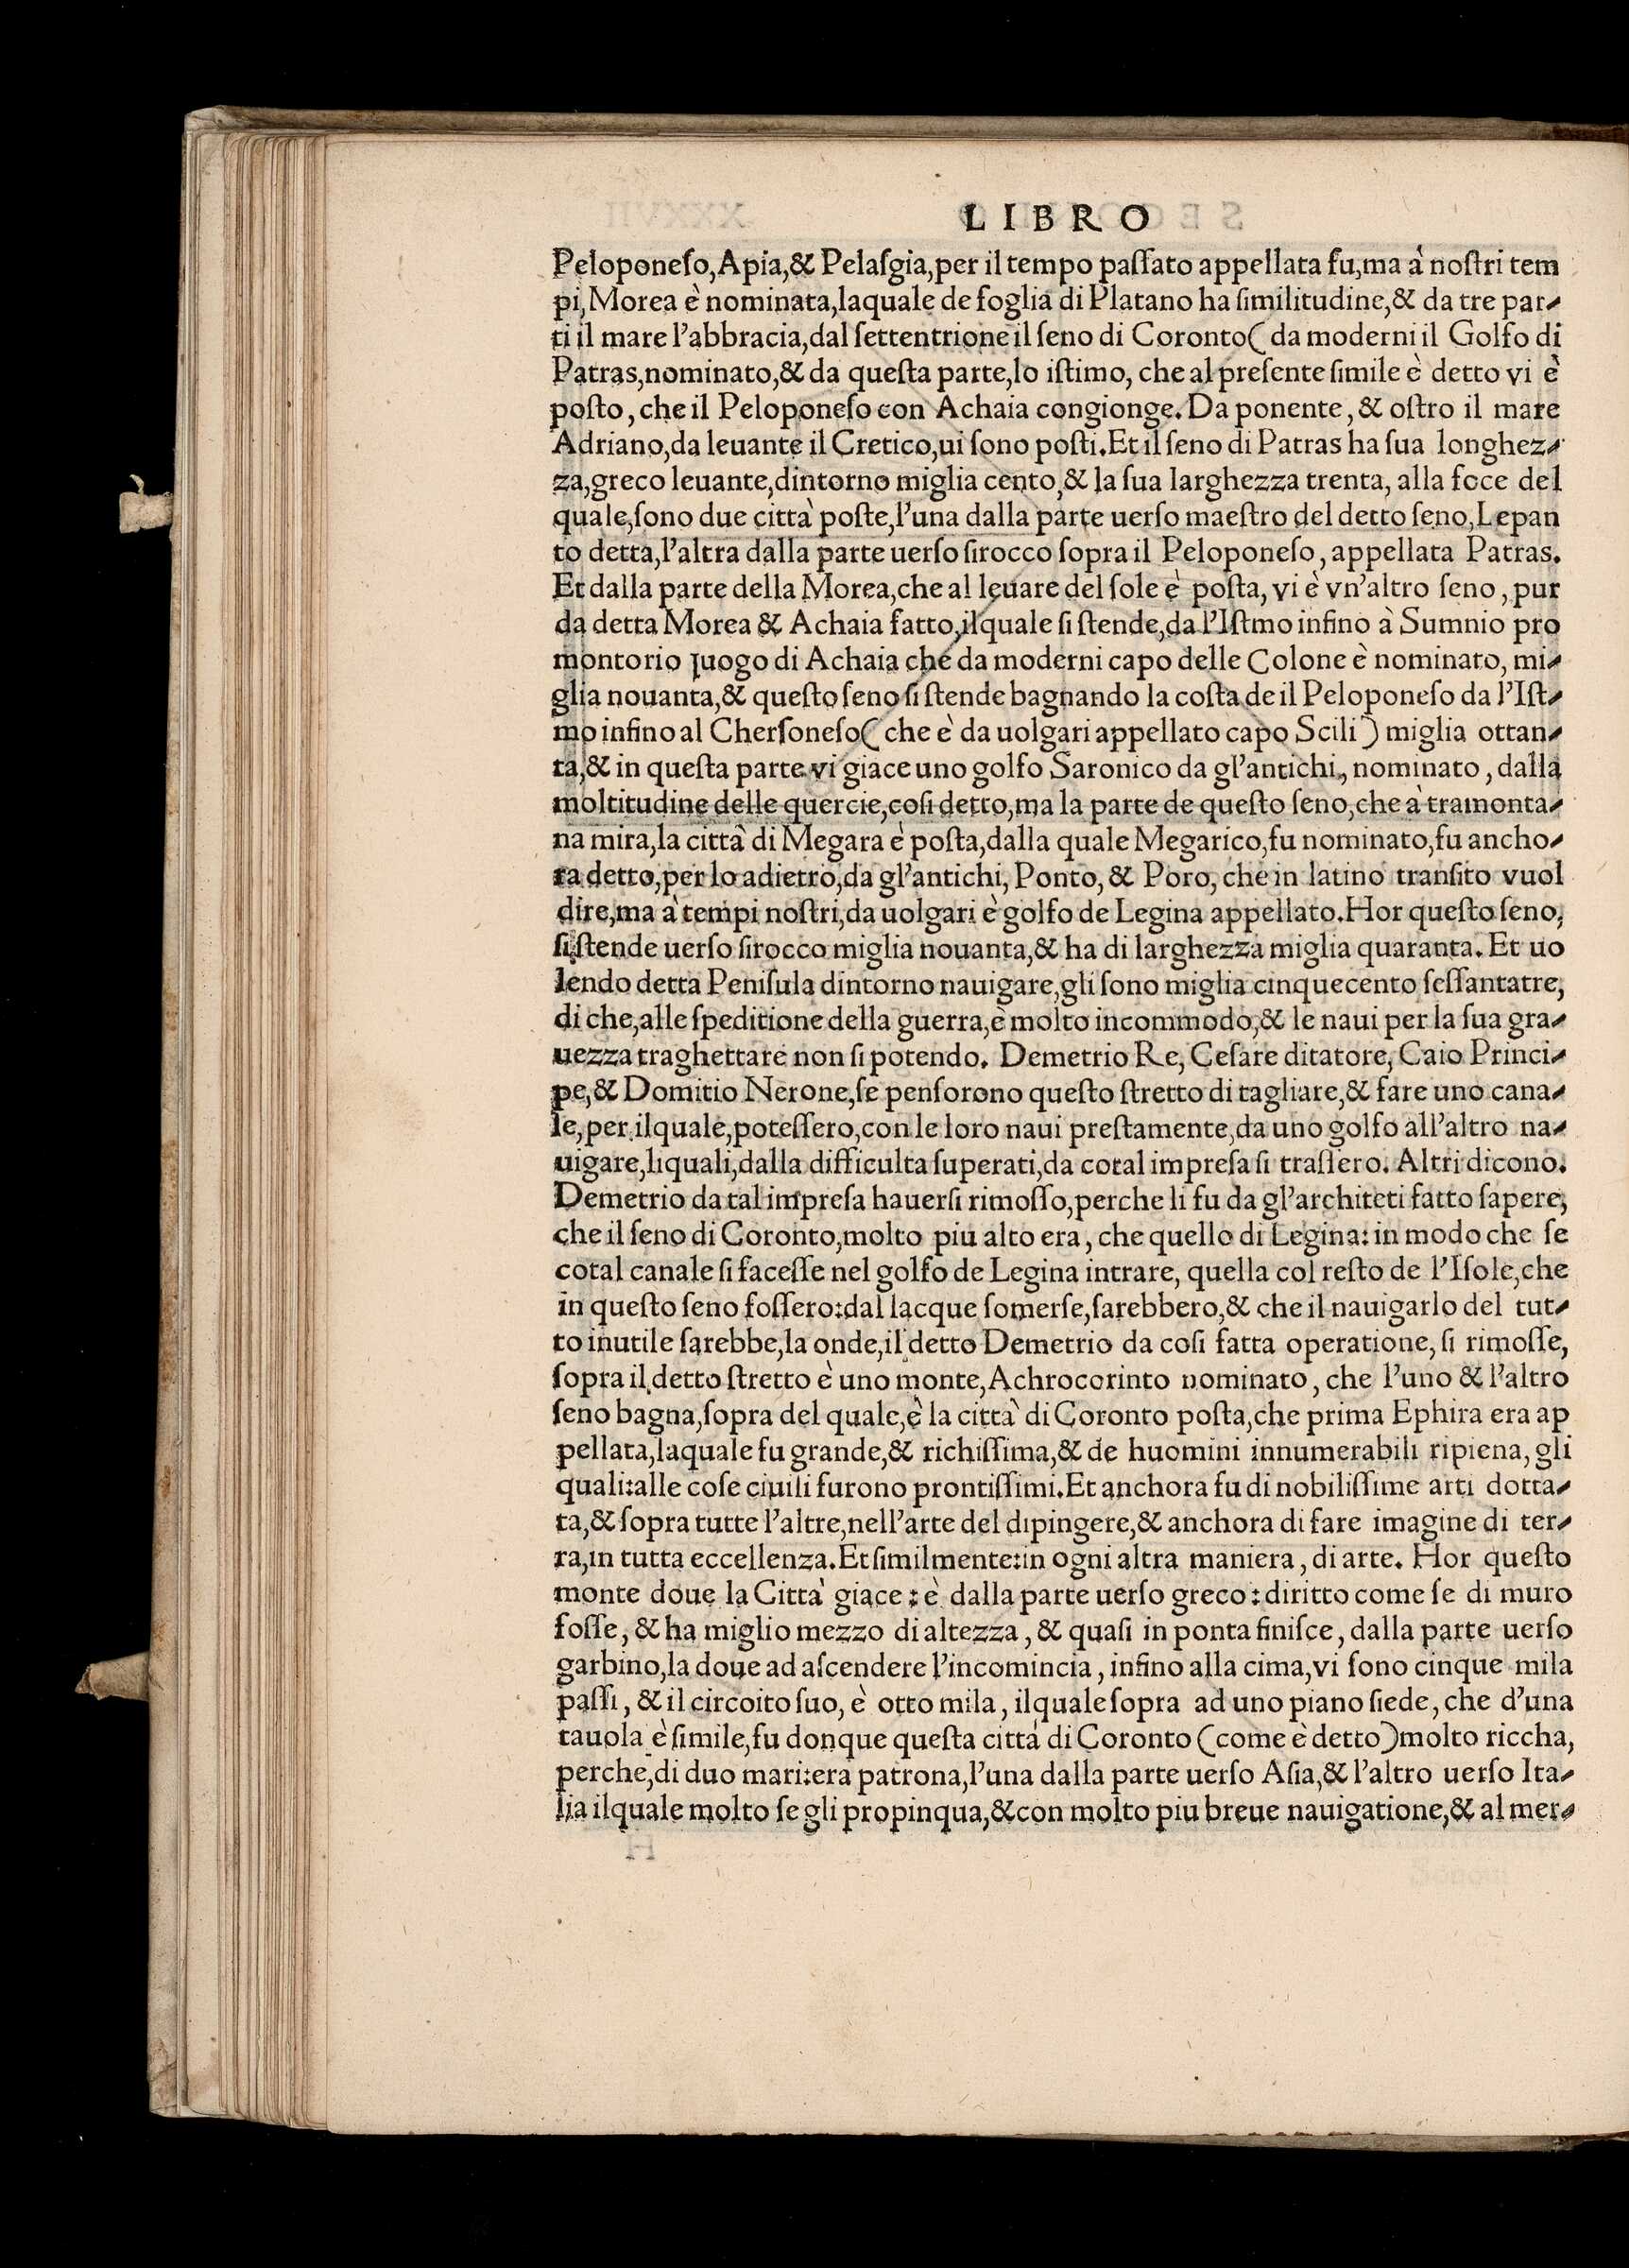 LIBRO
Peloponeſo,Apia,& Pelaſgia,per il tempo paſſato appellata fu,ma à noſtri tem
pi, Morea è nominata,laquale de foglia di Platano ha ſimilitudine,& da tre par-
ti il mare l'abbracia,dal ſettentrione il ſeno di Coronto( da moderni il Golfo di
Patras,nominato,& da queſta parte,lo iſtimo, che al preſente ſimile è detto vi è
poſto, che il Peloponeſo con Achaia congionge. Da ponente, & oſtro il mare
Adriano,da leuante il Cretico,ui ſono poſti.Et il ſeno di Patras ha ſua longhez-
za,greco leuante,dintorno miglia cento,& la ſua larghezza trenta, alla foce del
quale,ſono due città poſte,l'una dalla parte uerſo maeſtro del detto ſeno,Lepan
to detta,l'altra dalla parte uerſo ſirocco ſopra il Peloponeſo, appellata Patras.
Et dalla parte della Morea,che al leuare del ſole è poſta, vi è vn'altro ſeno, pur
da detta Morea & Achaia fatto,ilquale ſi ſtende,da l'Iſtmo infino à Sumnio pro
montorio luogo di Achaia che da moderni capo delle Colone è nominato, mi-
glia nouanta,& queſto ſeno ſi ſtende bagnando la coſta de il Peloponeſo da l'Iſt-
mo infino al Cherſoneſo( che è da uolgari appellato capo Scili ) miglia ottan-
ta,& in queſta parte vi giace uno golfo Saronico da gl'antichi, nominato, dalla
moltitudine delle quercie,coſi detto,ma la parte de queſto ſeno,che à tramonta-
na mira,la città di Megara è poſta,dalla quale Megarico,fu nominato,fu ancho-
ra detto,per lo adietro,da gl'antichi, Ponto, & Poro, che in latino tranſito vuol
dire,ma à tempi noſtri,da uolgari è golfo de Legina appellato.Hor queſto ſeno,
ſi ſtende uerſo ſirocco miglia nouanta,& ha di larghezza miglia quaranta. Et uo
lendo detta Peniſula dintorno nauigare,gli ſono miglia cinquecento ſeſſantatre,
di che,alle ſpeditione della guerra,è molto incommodo,& le naui per la ſua gra-
uezza traghettare non ſi potendo. Demetrio Re, Ceſare ditatore, Caio Princi-
pe,& Domitio Nerone,ſe penſorono queſto ſtretto di tagliare,& fare uno cana-
le,per ilquale,poteſſero,con le loro naui preſtamente,da uno golfo all'altro na-
uigare,liquali,dalla difficulta ſuperati,da cotal impreſa ſi traſſero. Altri dicono.
Demetrio da tal impreſa hauerſi rimoſſo,perche li fu da gl'architeti fatto ſapere,
che il ſeno di Coronto,molto piu alto era, che quello di Legina: in modo che ſe
cotal canale ſi faceſſe nel golfo de Legina intrare, quella col reſto de l'Iſole,che
in queſto ſeno foſſero:dal lacque ſomerſe,ſarebbero,& che il nauigarlo del tut-
to inutile ſarebbe,la onde,il detto Demetrio da coſi fatta operatione, ſi rimoſſe,
ſopra il detto ſtretto è uno monte,Achrocorinto nominato, che l'uno & l'altro
ſeno bagna,ſopra del quale,è la città di Coronto poſta,che prima Ephira era ap
pellata,laquale fu grande,& richiſſima,& de huomini innumerabili ripiena, gli
quali:alle coſe ciuili furono prontiſſimi.Et anchora fu di nobiliſſime arti dotta-
ta,& ſopra tutte l'altre,nell'arte del dipingere,& anchora di fare imagine di ter-
ra,in tutta eccellenza.Et ſimilmente:in ogni altra maniera, di arte. Hor queſto
monte doue la Città giace : è dalla parte uerſo greco: diritto come ſe di muro
foſſe, & ha miglio mezzo di altezza, & quaſi in ponta finiſce, dalla parte uerſo
garbino,la doue ad aſcendere l'incomincia, infino alla cima,vi ſono cinque mila
paſſi, & il circoito ſuo, è otto mila, ilquale ſopra ad uno piano ſiede, che d'una
tauola è ſimile,fu donque queſta cittá di Coronto (come è detto)molto riccha,
perche,di duo mari:era patrona,l'una dalla parte uerſo Aſia,& l'altro uerſo Ita-
lia ilquale molto ſe gli propinqua,&con molto piu breue nauigatione,& al mer-